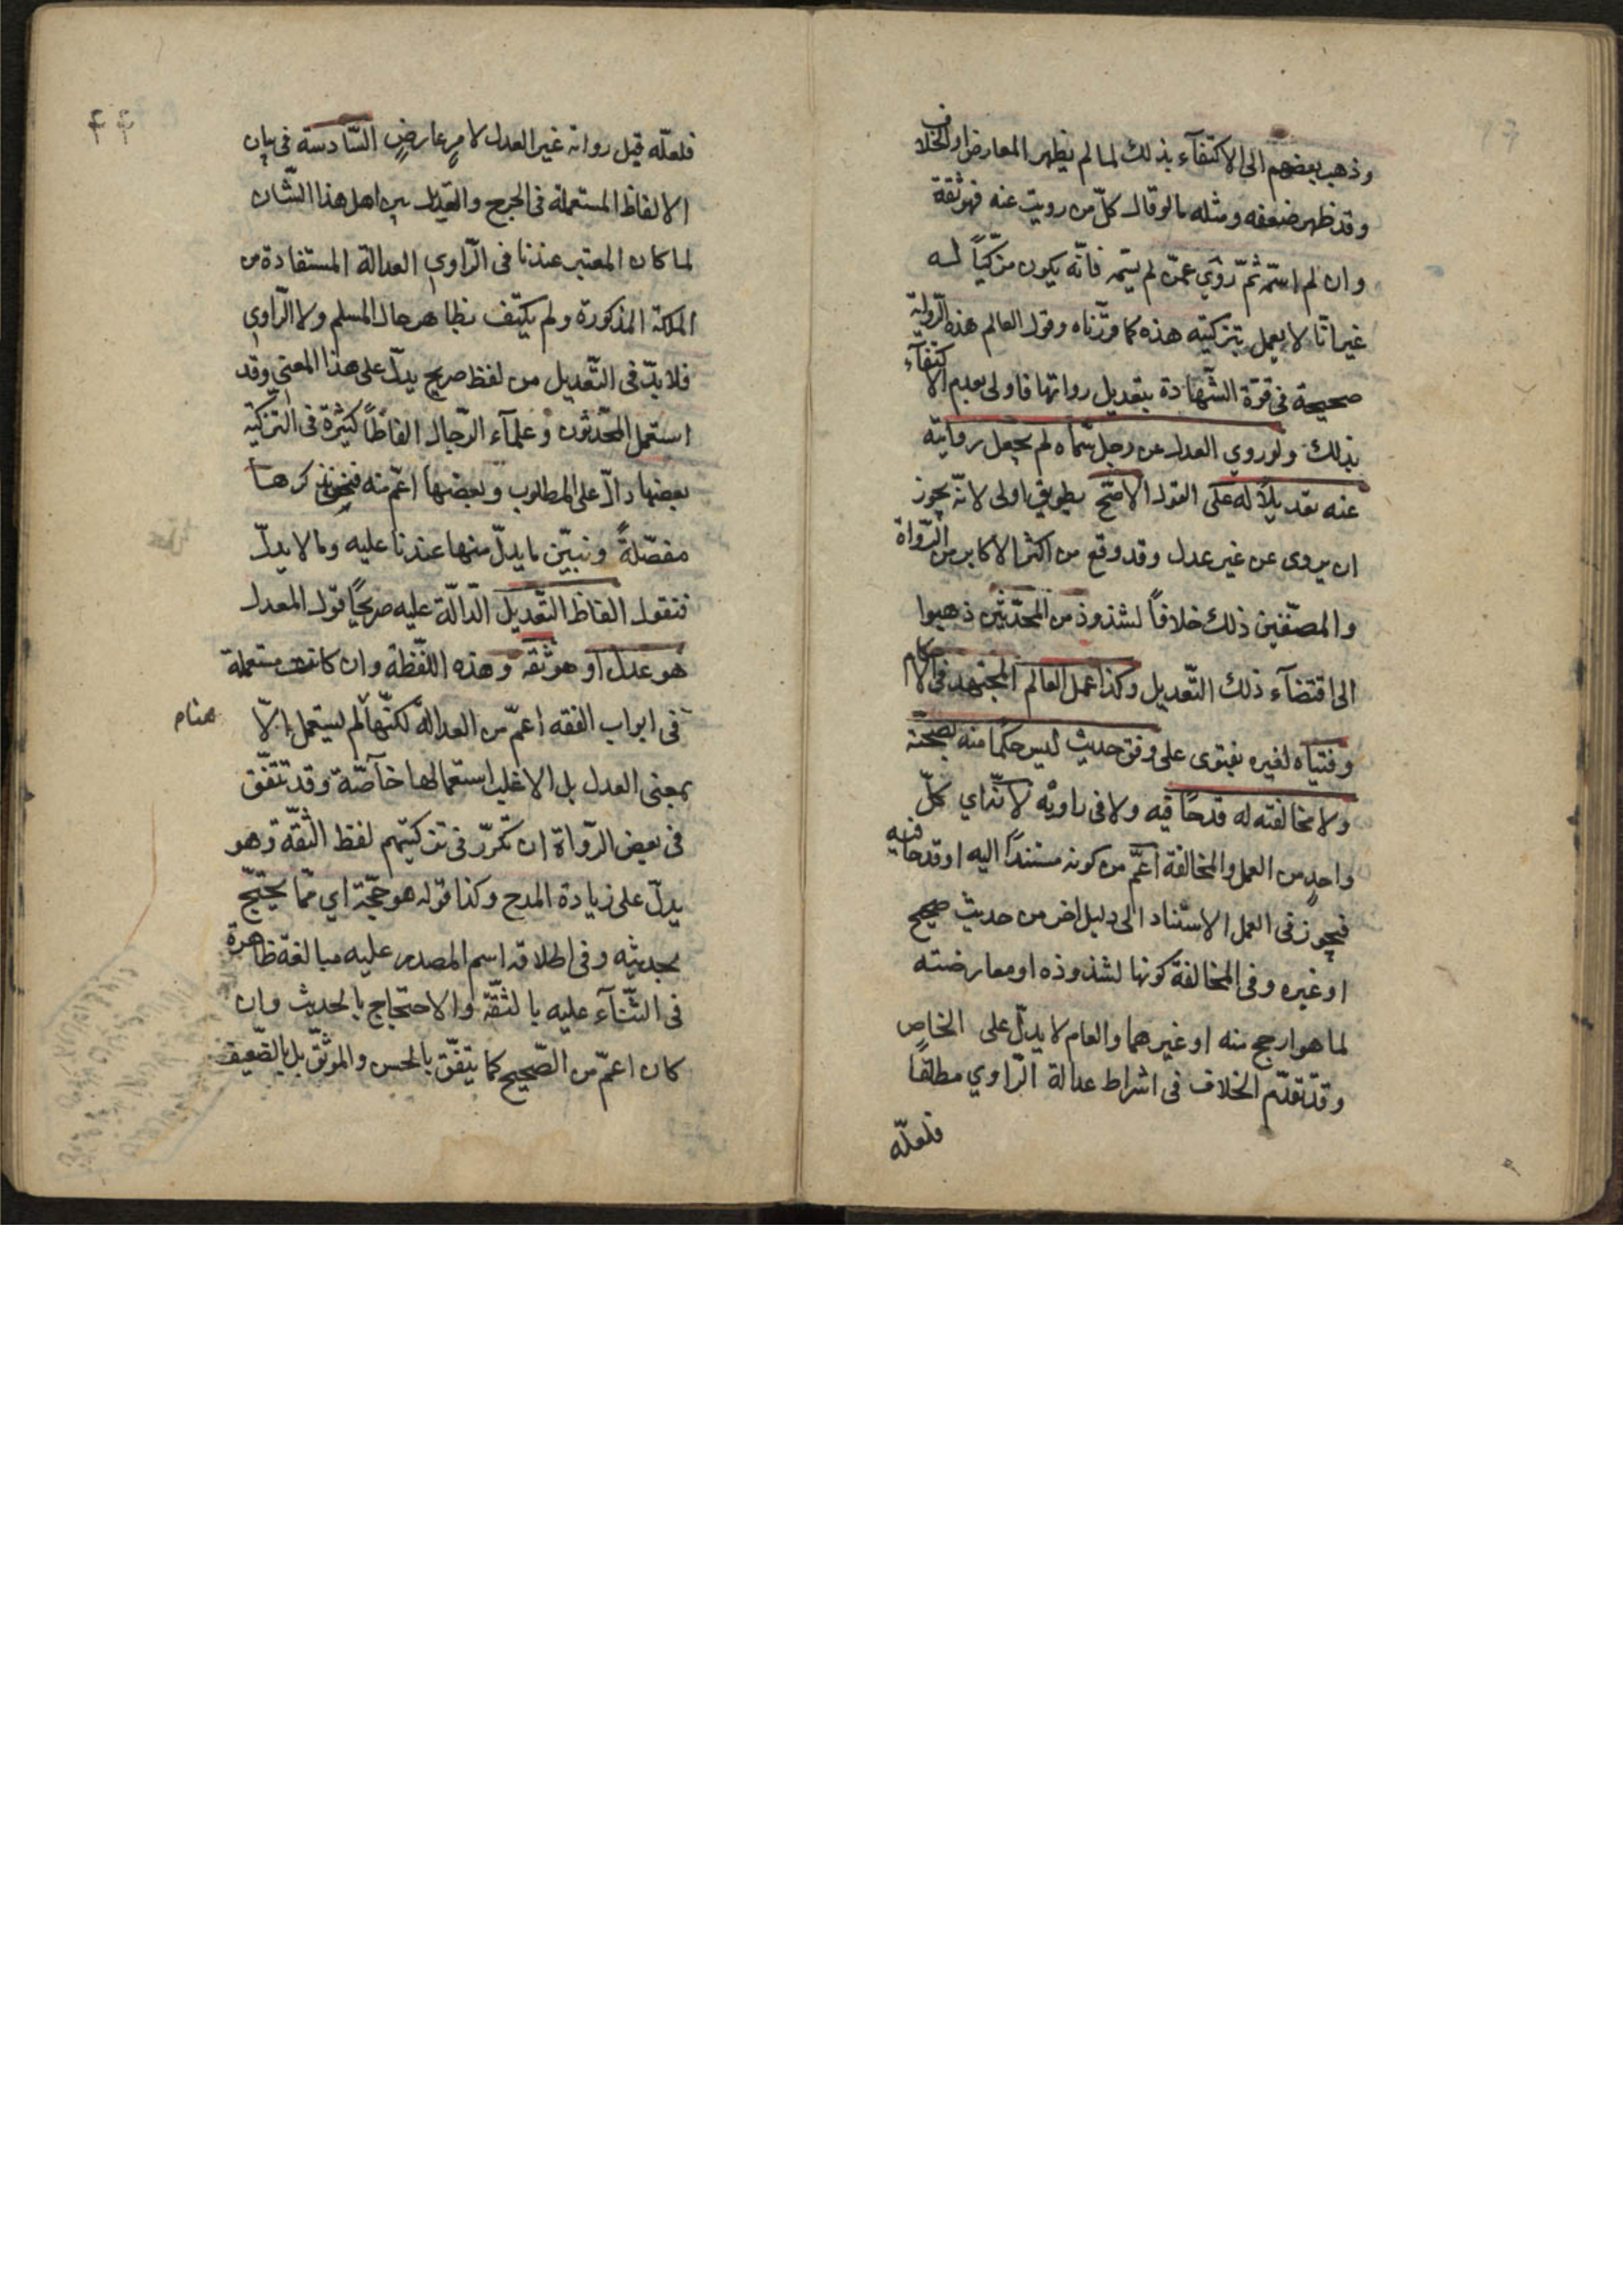 وذهب بعضهم الى الاكتفآء بذلك لما لم يظهر المعارض او الخلاف
وقد ظهر ضعفه ومثله مالو قال كلّ من رويت عنه فهو ثقة
وان لم اسمّه ثمّ روي عمّن لم يسمه فانّه يكون مزكّياً له
غير انّا لا يعمل بتزكيته هذه كما قرّرناه وقول العالم هذه الرّواية
صحيحة فى قوّة الشّهادة بتعديل رواتها فاولى بعدم الاكتفآء
بذلك ولو روي العدل عن رجل سمّاه لم يجعل روايته
عنه تعديلاً له على القول الاصحّ بطريق اولى لانّه يجوز
ان يروى عن غير عدل وقد وقع من اكثر الاكابر من الرّواة
والمصنّفين ذلك خلافاً لشذوذ من المحدّثين ذهبوا
الى اقتضآء ذلك التّعديل وكذا عمل العالم المجتهد فى الاحكام
وفتياه لغيره بفتوى على وفق حديث ليس حكما منه بصحّته
ولا مخالفته له قدحاً فيه ولا فى راويه لانّه اي كلّ
واحدٍ من العمل والمخالفة اعمّ من كونه مستنداً اليه او قدحاً فيه
فيجوز فى العمل الاستناد الى دليل اخر من حديث صحيح
او غيره وفى المخالفة كونها لشذوذه او معارضته
لما هو ارجح منه او غيرهما والعام لا يدلّ على الخاص
وقد تقدّم الخلاف فى اشراط عدالة الرّاوي مطلقاً
فلعلّه
٤٤
فلعلّه قبل رواية غير العدل لا من عارضٍ السّادسة فى بيان
الالفاظ المستعملة فى الجرح والتعديل بين اهل هذا الشّان
لما كان المعتبر عندنا فى الرّاوي العدالة المستفادة من
الملكة المذكورة ولم يكتف بظاهر حال المسلم ولا الرّاوي
فلا بدّ فى التّعديل من لفظ صريح يدلّ على هذا المعنى وقد
استعمل المحدّثون وعلمآء الرّجال الفاظاً كثيرة فى التزكية
بعضها دالّ على المطلوب وبعضها اعمّ منه فنحن نذكرها
مفصّلةً ونبيّن ما يدلّ منها عندنا عليه وما لا يدلّ
فنقول الفاظ التّعديل الدّالّة عليه صريحاً قول المعدل
هو عدل او هو ثقة وهذه اللّفظة وان كانت مستعملة
فى ابواب الفقه اعمّ من العدالة لكنّها لم يستعمل الّا
هنا م
بمعنى العدل بل الاغلب استعمالها خآصّة وقد تتّفق
فى بعض الرّواة ان تكرّر فى تزكيتهم لفظ الثّقة وهو
يدلّ على زيادة المدح وكذا قوله هو حجّة اي ممّا يحتجّ
بحديثه وفى اطلاق اسم المصدر عليه مبالغة ظاهرة
فى الثّنآء عليه بالثّقة والاحتجاج بالحديث وان
كان اعمّ من الصّحيح كما يتفّق بالحسن والموثّق بل بالضّعيف